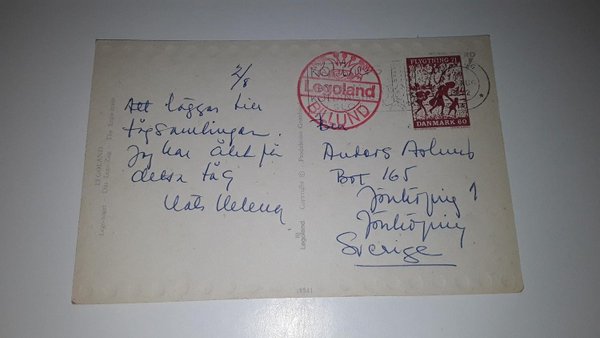 2/8
Att läggas till
tågsamlingen.
Jag har åkt på
detta tåg
Mats Helena
LEGOLAND
Legoland
BILLUND
FLYGTNING 71
DANMARK 60
Anders
Box 165
Jönköping 1
Jönköping
Sverige
Legoland Copyright ©